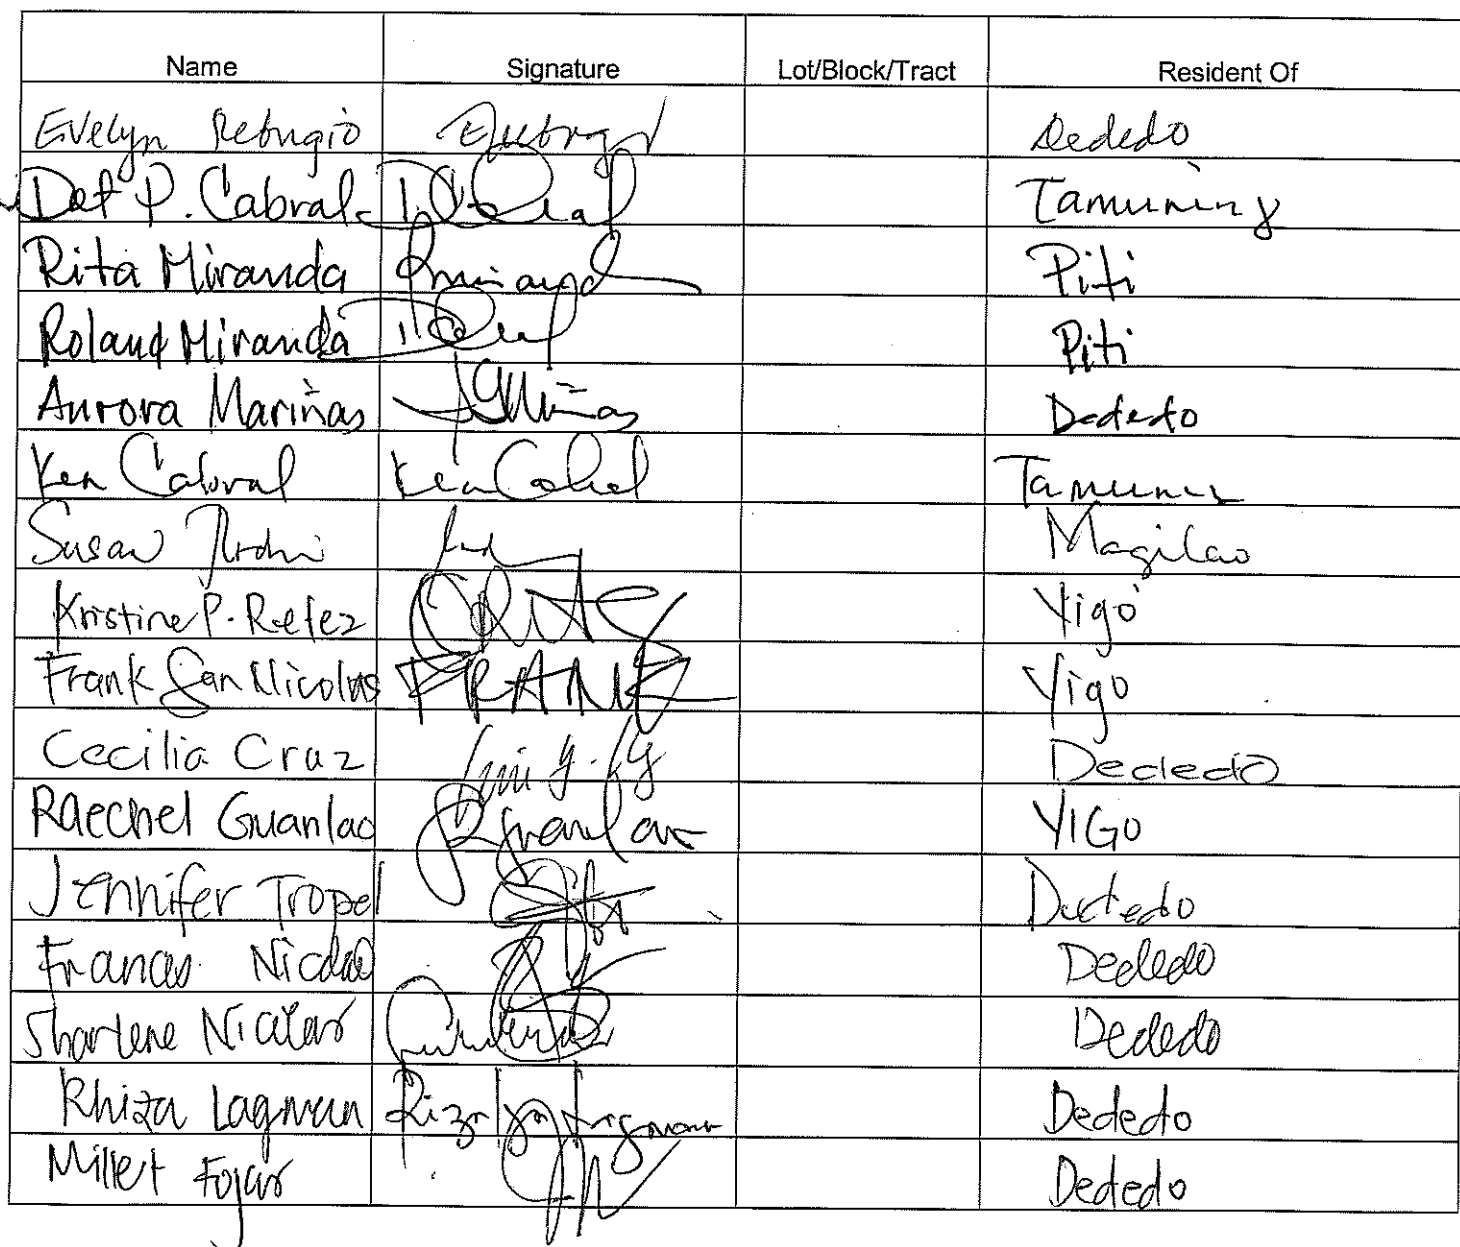 Name Signature Lot/Block/Tract Resident Of
Evelyn Refugio Dededo
Det P. Cabral Tamuning
Rita Miranda Rmirand Piti
Roland Miranda Piti
Aurora Mariñas Dededo
Ken Cabral Ken Cabral Tamuning
Susan Magilao
Kristine P. Relez Yigo
Frank San Nicolas FRANK Yigo
Cecilia Cruz Dededo
Raechel Guanlao Rguanlao YIGO
Jennifer Tropel Dededo
Frances Nicolas Dededo
Sharlene Nicolas Dededo
Rhiza Lagman Rizalyn Lagman Dededo
Millet Fojas Dededo